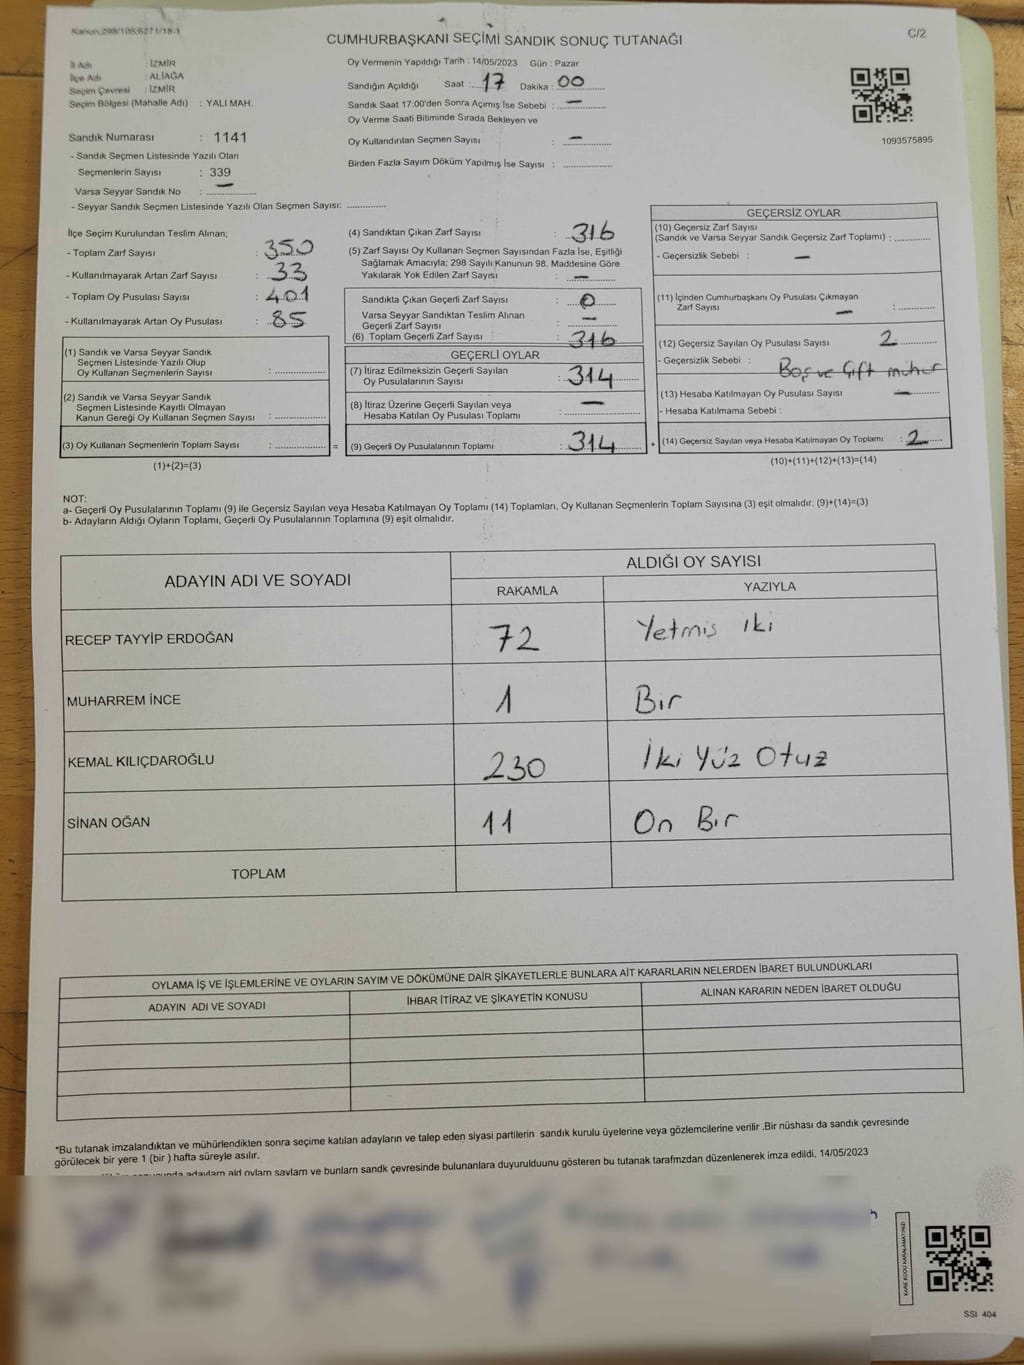 Kanun:298/105;6271/18-1
CUMHURBAŞKANI SEÇİMİ SANDIK SONUÇ TUTANAĞI
C/2
İl Adı : İZMİR
İlçe Adı : ALİAĞA
Seçim Çevresi : İZMİR
Seçim Bölgesi (Mahalle Adı) : YALI MAH.
Oy Vermenin Yapıldığı Tarih : 14/05/2023 Gün : Pazar
Sandığın Açıldığı Saat : 17 Dakika : 00
Sandık Saat 17:00'den Sonra Açımış İse Sebebi : —
Oy Verme Saati Bitiminde Sırada Bekleyen ve
Oy Kullandırılan Seçmen Sayısı : —
Birden Fazla Sayım Döküm Yapılmış İse Sayısı : ..............
1093575895
Sandık Numarası : 1141
- Sandık Seçmen Listesinde Yazılı Olan
Seçmenlerin Sayısı : 339
Varsa Seyyar Sandık No : —
- Seyyar Sandık Seçmen Listesinde Yazılı Olan Seçmen Sayısı: ............
İlçe Seçim Kurulundan Teslim Alınan;
- Toplam Zarf Sayısı : 350
- Kullanılmayarak Artan Zarf Sayısı : 33
- Toplam Oy Pusulası Sayısı : 401
- Kullanılmayarak Artan Oy Pusulası : 85
(1) Sandık ve Varsa Seyyar Sandık
Seçmen Listesinde Yazılı Olup
Oy Kullanan Seçmenlerin Sayısı : ..............
(2) Sandık ve Varsa Seyyar Sandık
Seçmen Listesinde Kayıtlı Olmayan
Kanun Gereği Oy Kullanan Seçmen Sayısı : ..............
(3) Oy Kullanan Seçmenlerin Toplam Sayısı : .............. =
(1)+(2)=(3)
(4) Sandıktan Çıkan Zarf Sayısı : 316
(5) Zarf Sayısı Oy Kullanan Seçmen Sayısından Fazla İse, Eşitliği
Sağlamak Amacıyla; 298 Sayılı Kanunun 98. Maddesine Göre
Yakılarak Yok Edilen Zarf Sayısı : —
Sandıkta Çıkan Geçerli Zarf Sayısı : 0
Varsa Seyyar Sandıktan Teslim Alınan
Geçerli Zarf Sayısı : —
(6) Toplam Geçerli Zarf Sayısı : 316
GEÇERLİ OYLAR
(7) İtiraz Edilmeksizin Geçerli Sayılan
Oy Pusulalarının Sayısı : 314
(8) İtiraz Üzerine Geçerli Sayılan veya
Hesaba Katılan Oy Pusulası Toplamı : —
(9) Geçerli Oy Pusulalarının Toplamı : 314 +
GEÇERSİZ OYLAR
(10) Geçersiz Zarf Sayısı
(Sandık ve Varsa Seyyar Sandık Geçersiz Zarf Toplamı) : ............
- Geçersizlik Sebebi : —
(11) İçinden Cumhurbaşkanı Oy Pusulası Çıkmayan
Zarf Sayısı — : ............
(12) Geçersiz Sayılan Oy Pusulası Sayısı 2
- Geçersizlik Sebebi : Boş ve Çift mühür
(13) Hesaba Katılmayan Oy Pusulası Sayısı —
- Hesaba Katılmama Sebebi :
(14) Geçersiz Sayılan veya Hesaba Katılmayan Oy Toplamı : 2
(10)+(11)+(12)+(13)=(14)
NOT:
a- Geçerli Oy Pusulalarının Toplamı (9) ile Geçersiz Sayılan veya Hesaba Katılmayan Oy Toplamı (14) Toplamları, Oy Kullanan Seçmenlerin Toplam Sayısına (3) eşit olmalıdır. (9)+(14)=(3)
b- Adayların Aldığı Oyların Toplamı, Geçerli Oy Pusulalarının Toplamına (9) eşit olmalıdır.
ADAYIN ADI VE SOYADI
ALDIĞI OY SAYISI
RAKAMLA
YAZIYLA
RECEP TAYYİP ERDOĞAN 72 Yetmiş iki
MUHARREM İNCE 1 Bir
KEMAL KILIÇDAROĞLU 230 İki Yüz Otuz
SİNAN OĞAN 11 On Bir
TOPLAM
OYLAMA İŞ VE İŞLEMLERİNE VE OYLARIN SAYIM VE DÖKÜMÜNE DAİR ŞİKAYETLERLE BUNLARA AİT KARARLARIN NELERDEN İBARET BULUNDUKLARI
ADAYIN ADI VE SOYADI
İHBAR İTİRAZ VE ŞİKAYETİN KONUSU
ALINAN KARARIN NEDEN İBARET OLDUĞU
*Bu tutanak imzalandıktan ve mühürlendikten sonra seçime katılan adayların ve talep eden siyasi partilerin sandık kurulu üyelerine veya gözlemcilerine verilir .Bir nüshası da sandık çevresinde
görülecek bir yere 1 (bir ) hafta süreyle asılır.
adayların ald oyların sayların ve bunların sandk çevresinde bulunanlara duyurulduunu gösteren bu tutanak tarafmzdan düzenlenerek imza edildi. 14/05/2023
KARE KODU KARALAMAYINIZ!
SSI 404